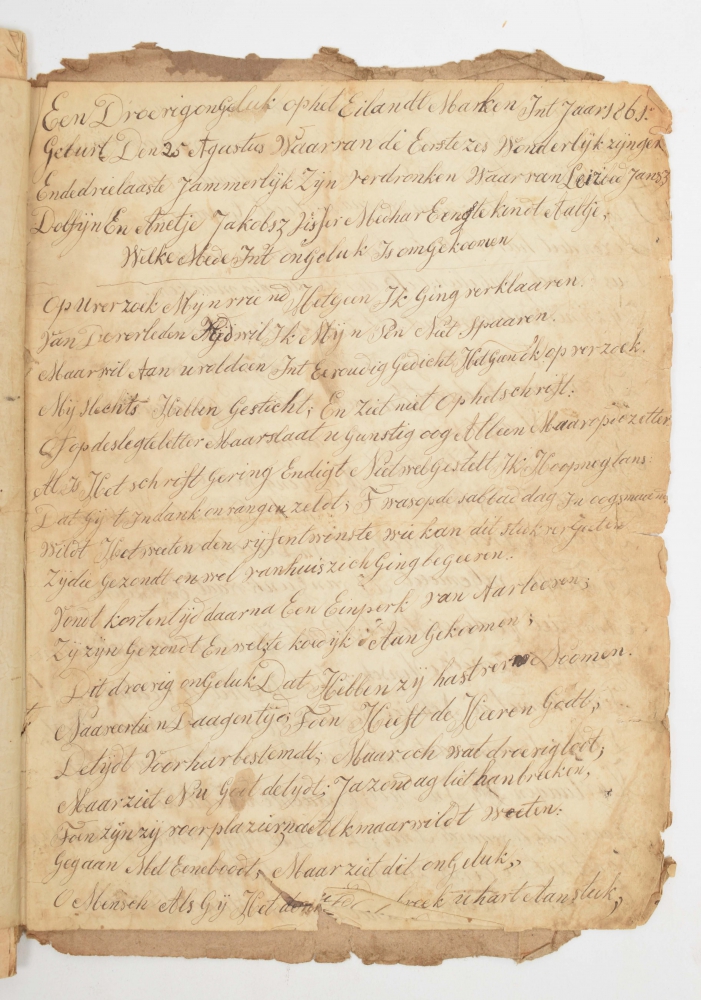 Een Droerig ongeluk ophet Eilandt Marken Int Jaar 1861:
Geburt Den 25 Agustus Waarvan de Eerste zes Wonderlyk zyn gered
Endedrielaaste Jammerlyk Zyn verdronken Waarvan Jansz
Dolfyn En Anetje Jakobsz Visser Medhar Eengste kindt Aaltje,
Welke Mede Int ongeluk Is omgekoomen
Op U verzoek Myn vrie nd Hetgeen Ik Ging verklaaren.
Van De verleden Tyd wil Ik Myn Pen Niet Spaaren.
Maar wil Aan u voldoen Int Eenvoudig Gedicht Het Gun ik op verzoek.
My slechts Hebben Gesticht; En Ziet niet Ophetschrift:
Of op de slegte letter Maar slaat u gunstig oog Alleen Maar op
Al Is Het schrift Gering Endigt Niet wel Gestelt Ik Hoop nog
Dat Gy 't Indank ontvangen zeldt; T was op de sabbad dag In oogsmaand
Wildt Het weeten den vyfentwinste wie kan dit stuk ver Geeten
Zy die Gezondt en wel van huis zich Ging begeeren.
Vondt korten tyd daarna Een Einperk van Haar leeven;
Zy zyn Gezondt En wel te kowyk Aan Gekoomen;
Dit droerig on Geluk Dat Hebben zy hast ver noomen.
Naaveertien Daagen tyds Toen Heeft de Heeren Godt,
De tydt Voorhar bestemdt; Maar och wat droerig lodt;
Maar ziet Nu Goet de tydt; Ja zondag liet han breeken,
Toen zyn zy voor plazier naet Ik maar wildt weeten:
Gegaan Met Eene Boodt, Maar ziet dit on Geluk,
O Mensch Als Gy Het breek u hart Aan stuk,